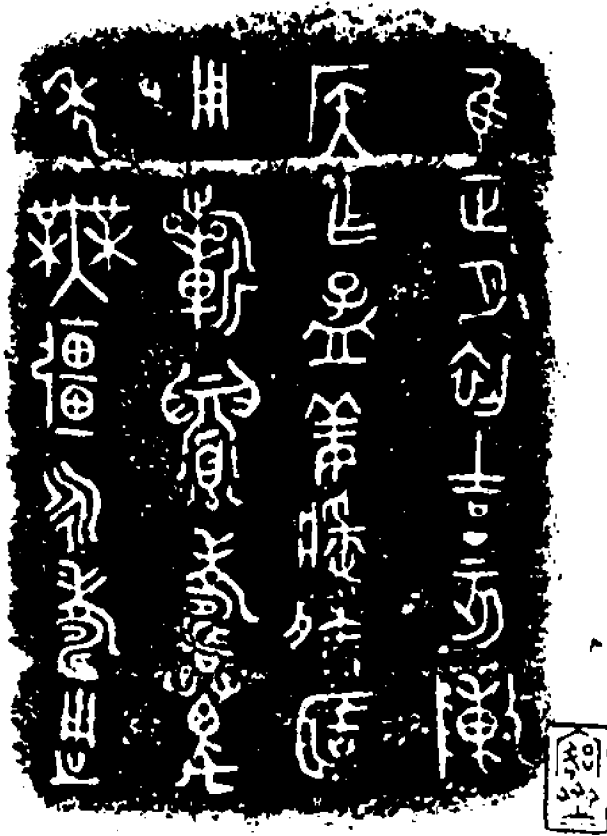 隹正月初吉丁亥陳
侯乍孟姜簠
用祈眉壽萬
年無疆永壽用之